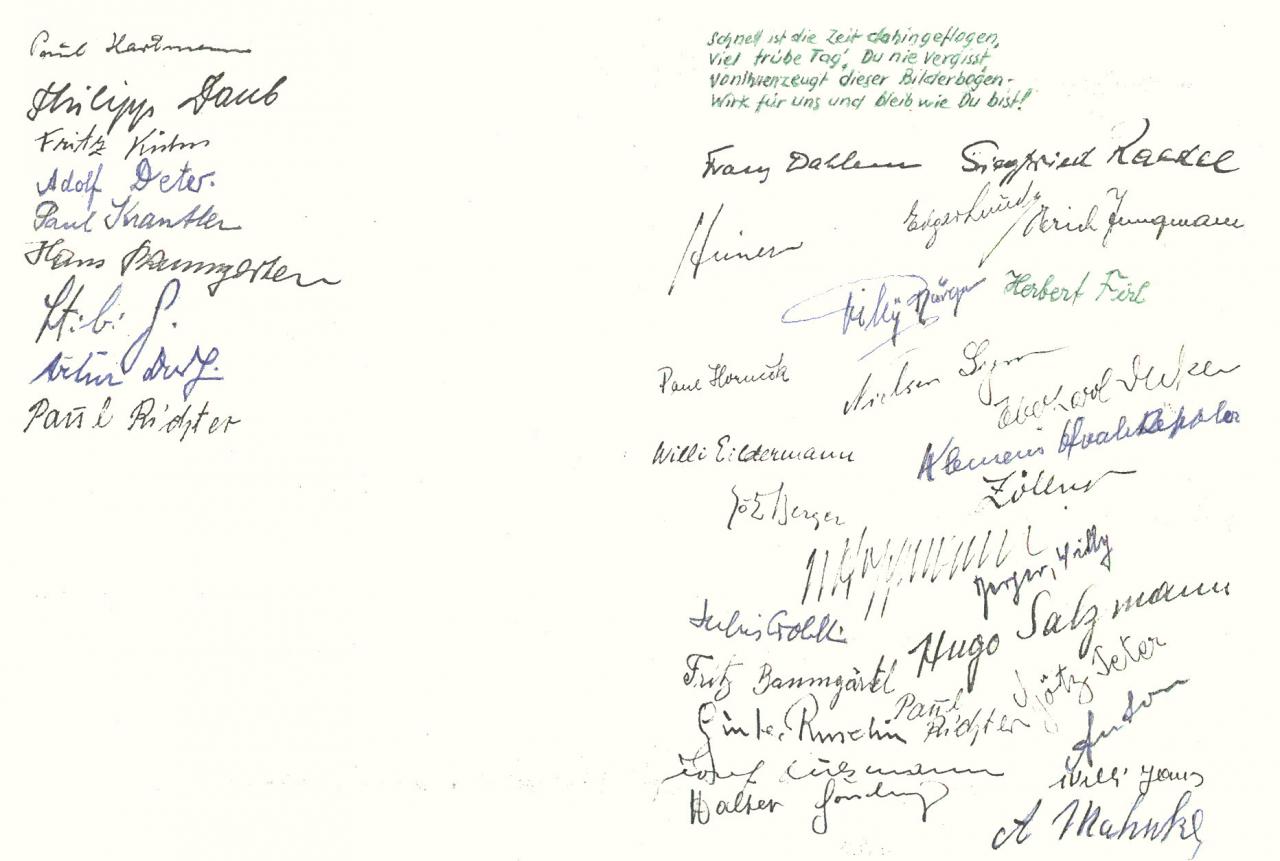 Paul Hartmann
Philipp Daub
Fritz
Adolf Deter.
Paul Krantler
Hans Baumgarten
Artur
Paul Richter
Schnell ist die Zeit dahingeflogen,
Viel trübe Tag', Du nie vergisst,
Von ihnen zeugt dieser Bilderbogen-
Wirk für uns und bleib wie Du bist!
Franz Dahlem Siegfried Raedel
Erich Jungmann
Heiner
Herbert Firl
Paul Hornick
Nielsen
Willi Eildermann
Klemens
Zöllner
Berger
Berger, Willy
Julius
Hugo Salzmann
Fritz Baumgärtel
Götz Peter
Paul
Richter
Günter Ruschin
Anton
Josef
Willi
Walter
A Mahnke